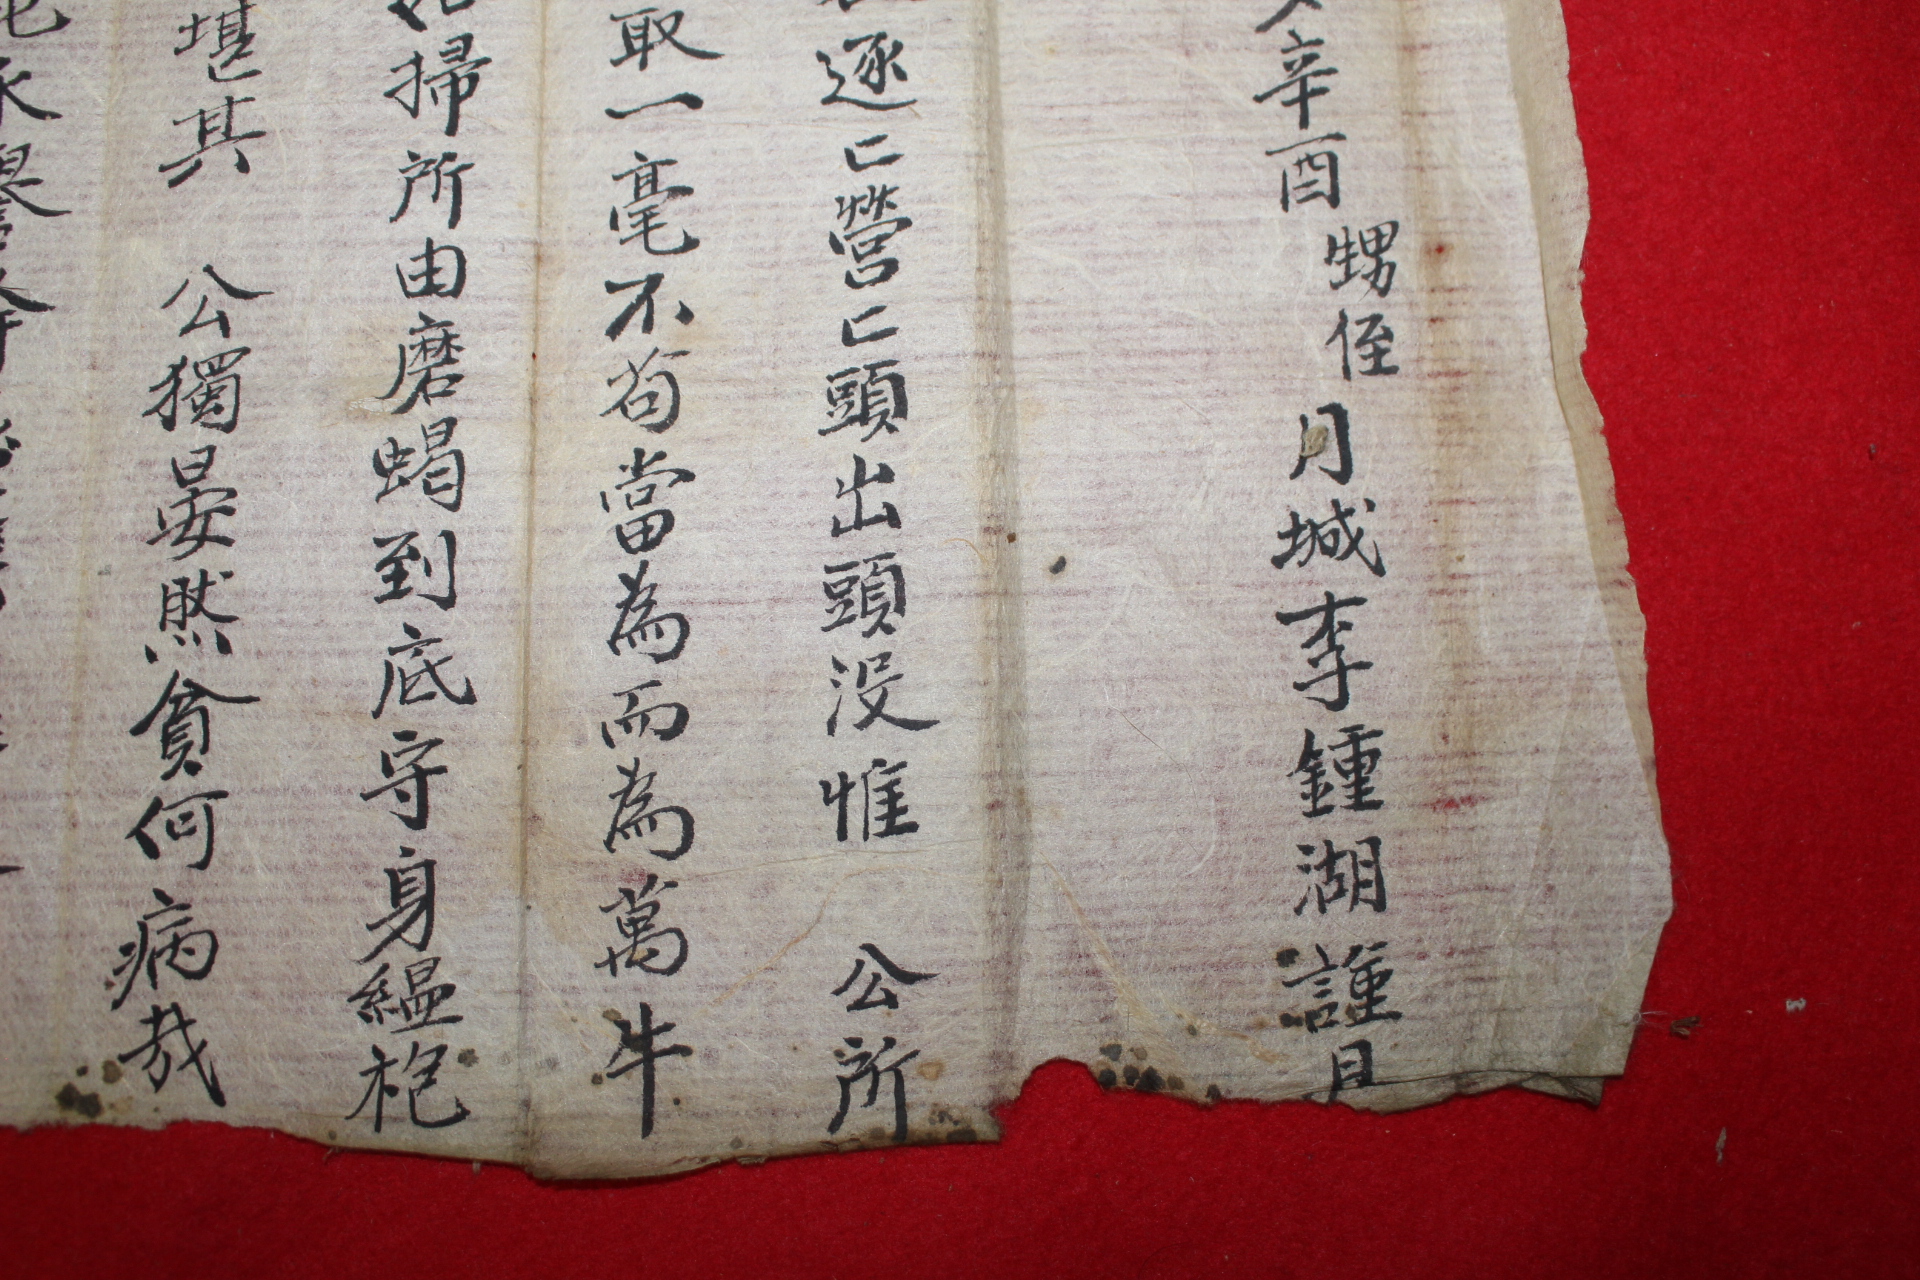 辛酉甥侄月城李鍾湖謹具
逐〻營〻頭出頭没惟 公所
取一毫不苟當為而為萬牛
掃所由磨蝎到底守身縕袍
堪其 公獨晏然貧何病哉